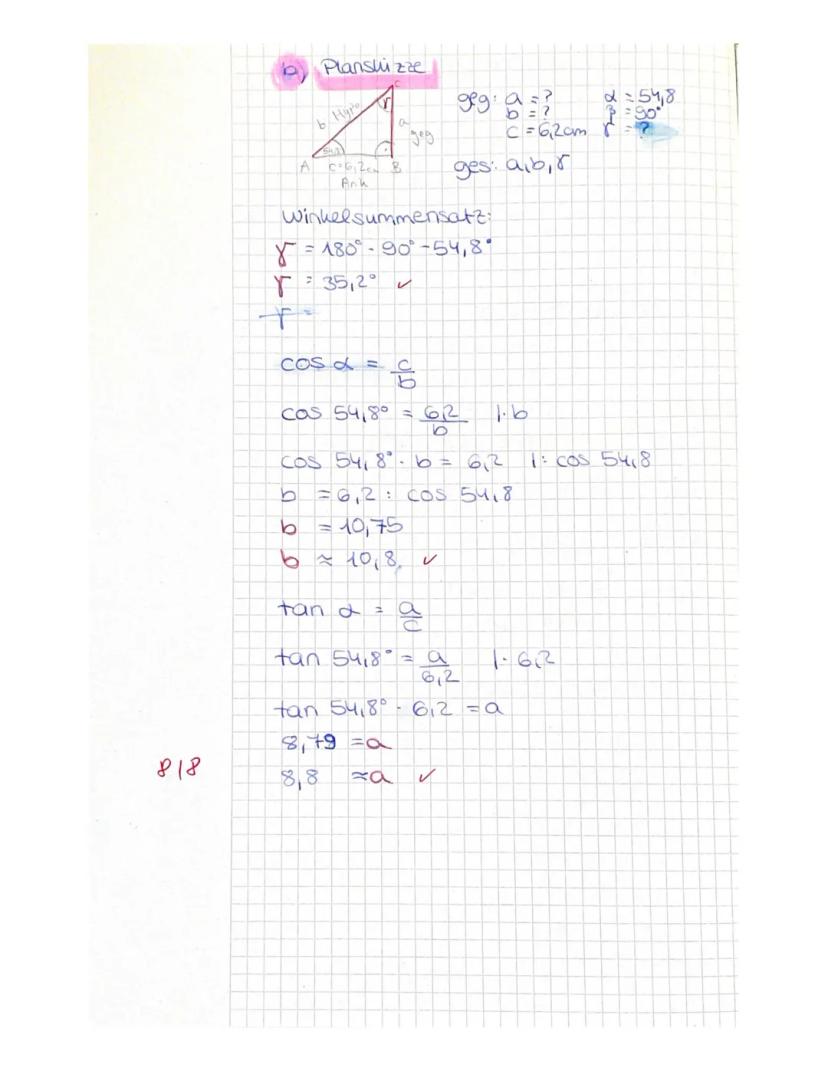 b) Planskizze
C
b Hypo
γ
a
geg
54,8
A c=6,2cm B
Ank
geg: a = ? α = 54,8
b = ? β = 90°
c = 6,2cm γ = ?
ges: a,b,γ
Winkelsummensatz:
γ = 180° - 90° - 54,8°
γ = 35,2° ✓
γ =
cos α = c/b
cos 54,8° = 6,2/b |· b
cos 54,8° · b = 6,2 |: cos 54,8
b = 6,2 : cos 54,8
b = 10,75
b ≈ 10,8 ✓
tan α = a/c
tan 54,8° = a/6,2 |· 6,2
tan 54,8° · 6,2 = a
8,79 = a
8,8 ≈ a ✓
8/8